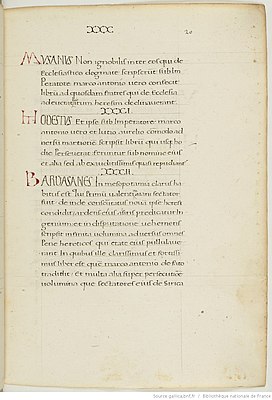 XXX
20
MUSANUS Non ignobilis inter eos qui de
Ecclesiastico dogmate scripserunt sub Im
peratore marco antonio uero confecit
librũ ad quosdam fratres qui de Ecclesia
ad eucratitarum heresim declinauerant.
XXXI.
MODESTUS Et ipse sub Imperatore marco
antonio uero et lucio aurelio cōmodo ad
uersus martionē scripsit librũ qui usq; ho
die perseuerat feruntur sub nomine eius
et alia sed ab exauditissimis quasi repudiant
XXXII.
BARDASANES In mesopotamia clarus ha
bitus est qui primũ ualentiani sectator
fuit deinde confutatus noua ipse heres
condidit ardens eius asiris predicatur In
genium et in disputatione uehemens
scripsit infinita uolumina aduersus omnes
pene hereticos qui etate eius pullulaue
rant In quibus ille clarissimus et fortissi
mus liber est quē marco antonio de fato
tradidit et multa alia super persecutiōe
uolumina que sectatores eius de siriaca
Source gallica.bnf.fr / Bibliothèque nationale de France